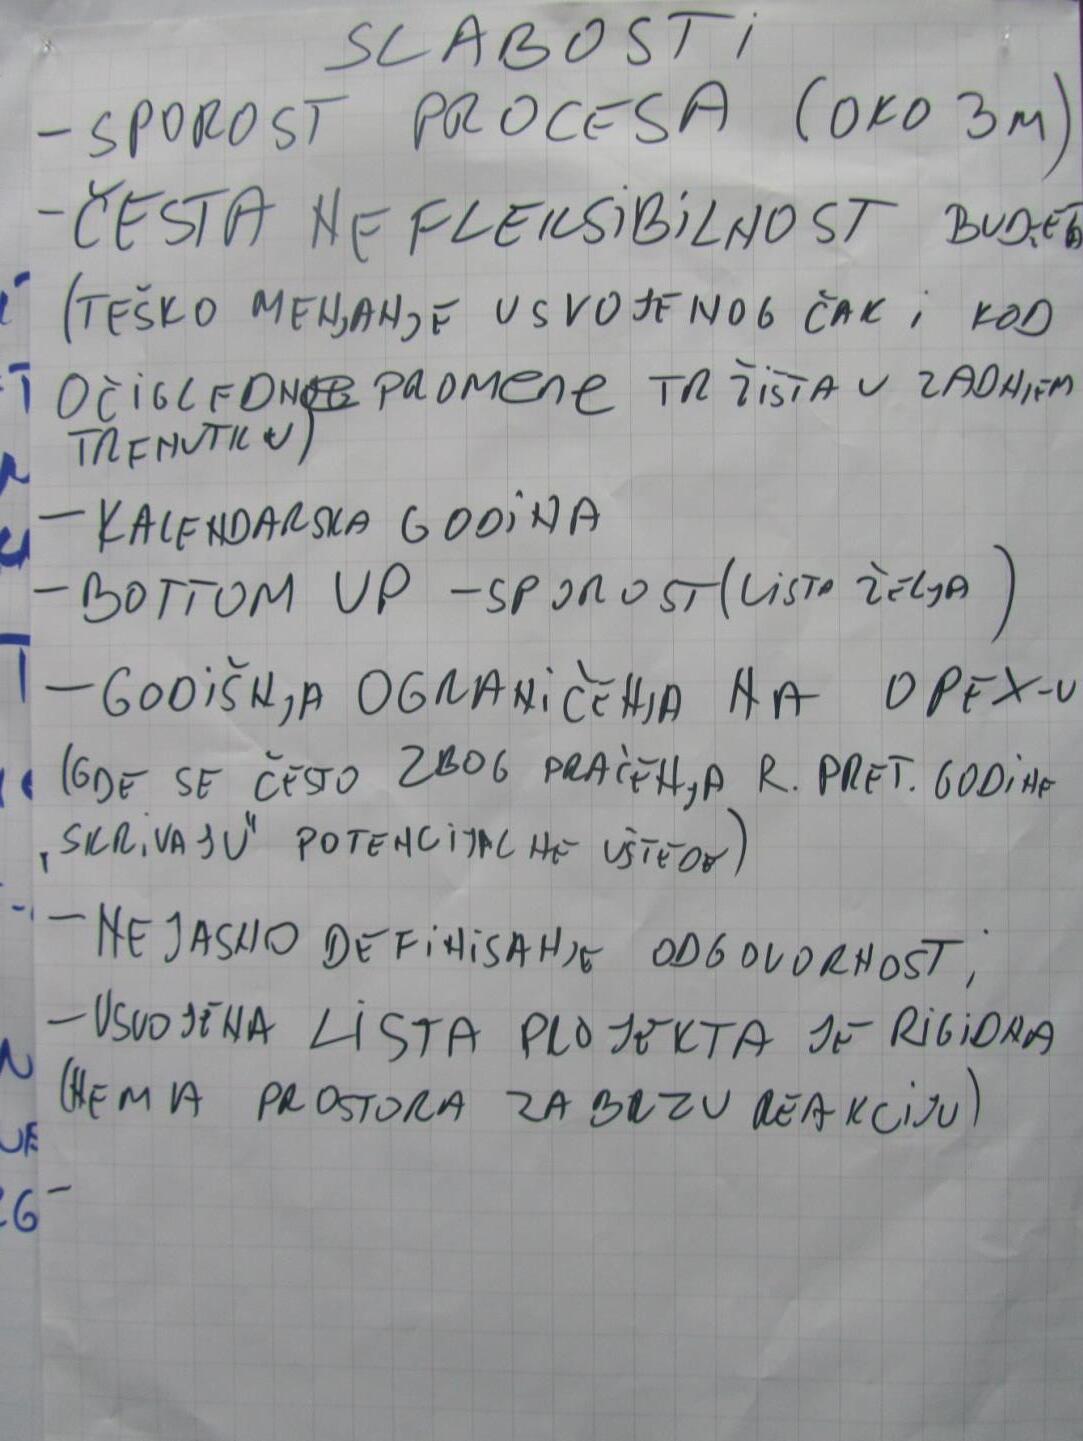 SLABOSTi
- SPOROST PROCESA (OKO 3M)
- ČESTA NEFLEKSiBiLNOST BUDžETA
(TEŠKO MENJANJE USVOJENOG ČAK i KOD
OČiGLEDNE PROMENE TRŽiŠTA U ZADNJEM
TRENUTKU)
- KALENDARSKA GODiNA
- BOTTOM UP - SPOROST (LiSTA ŽELJA)
- GODiŠNJA OGRANiČENJA NA OPEX-U
(GDE SE ČESTO ZBOG PRAĆENJA R. PRET. GODiNE
„SKRiVAJU" POTENCiJALNE UŠTEDE)
- NEJASNO DEFiNiSANJE ODGOVORNOSTi
- USVOJENA LiSTA PROJEKTA JE RiGiDNA
(NEMA PROSTORA ZA BRZU REAKCiJU)
-